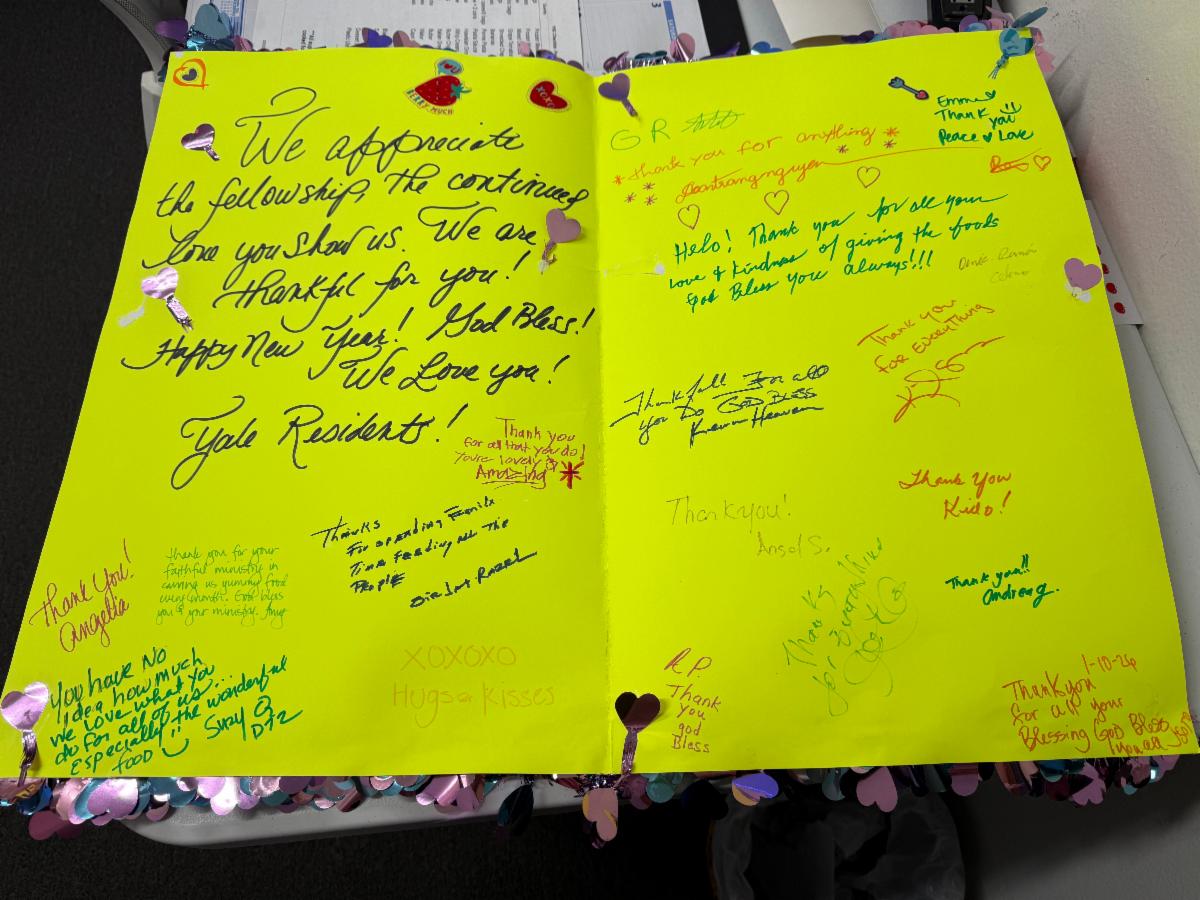 I ♥ U
BERRY MUCH
XOXO
We appreciate
the fellowship, the continued
love you show us. We are
thankful for you!
Happy New Year! God Bless!
We Love you!
Yale Residents!
Thank you
for all that you do!
You're lovely &
Amazing
Thanks
For spending Family
Time Feeding All The
People
Thank you for your
faithful ministry in
us yummy food
every month. God bless
you & your ministry.
Thank You!
Angelia
You have No
idea how much
we love what you
do for all of us...
Especially the wonderful
food
Suzy Q
XOXOXO
Hugs & Kisses
G R
Emma
Thank you
Peace ♥ Love
Thank you for anything
Helo! Thank you for all your
Love & kindness of giving the foods
God Bless you always!!!
Thank you
for Everything
Thankfull For all
you Do GOD BLESS
Thank You
Kido!
Thank you!
S.
Thank you!!
Andrea g.
Thanks
for Everything
R.P.
Thank
You
god
Bless
1-10-26
Thank you
for all your
Blessing God Bless